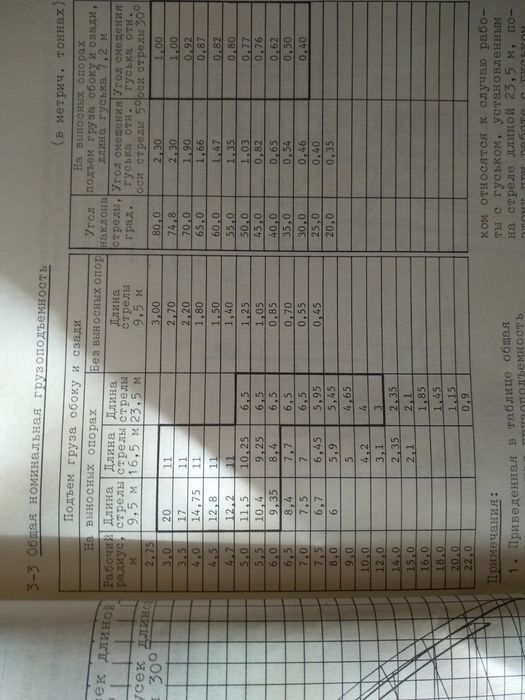 3-3 Общая номинальная грузоподъемность
(в метрич. тоннах)
Подъем груза сбоку и сзади
На выносных опорах
Без выносных опор
Рабочий радиус, м
Длина стрелы 9,5 м
Длина стрелы 16,5 м
Длина стрелы 23,5 м
Длина стрелы 9,5 м
2,75 3,00
3,0 20 11 2,70
3,5 17 11 2,20
4,0 14,75 11 1,80
4,5 12,8 11 1,50
4,7 12,2 11 1,40
5,0 11,5 10,25 6,5 1,25
5,5 10,4 9,25 6,5 1,05
6,0 9,35 8,4 6,5 0,85
6,5 8,4 7,7 6,5 0,70
7,0 7,5 7 6,5 0,55
7,5 6,7 6,45 5,95 0,45
8,0 6 5,9 5,45
9,0 5 4,65
10,0 4,2 4
12,0 3,1 3
14,0 2,35 2,35
15,0 2,1 2,1
16,0 1,85
18,0 1,45
20,0 1,15
22,0 0,9
Угол наклона стрелы, град.
На выносных опорах
подъем груза сбоку и сзади,
длина гуська 7,2 м
Угол смещения гуська отн. оси стрелы 5°
Угол смещения гуська отн. оси стрелы 30°
80,0 2,30 1,00
74,8 2,30 1,00
70,0 1,90 0,92
65,0 1,66 0,87
60,0 1,47 0,82
55,0 1,35 0,80
50,0 1,03 0,77
45,0 0,82 0,76
40,0 0,65 0,62
35,0 0,54 0,50
30,0 0,46 0,40
25,0 0,40
20,0 0,35
Примечания:
1. Приведенная в таблице общая
ком относятся к случаю рабо-
ты с гуськом, установленным
на стреле длиной 23,5 м, по-
длиной
30°